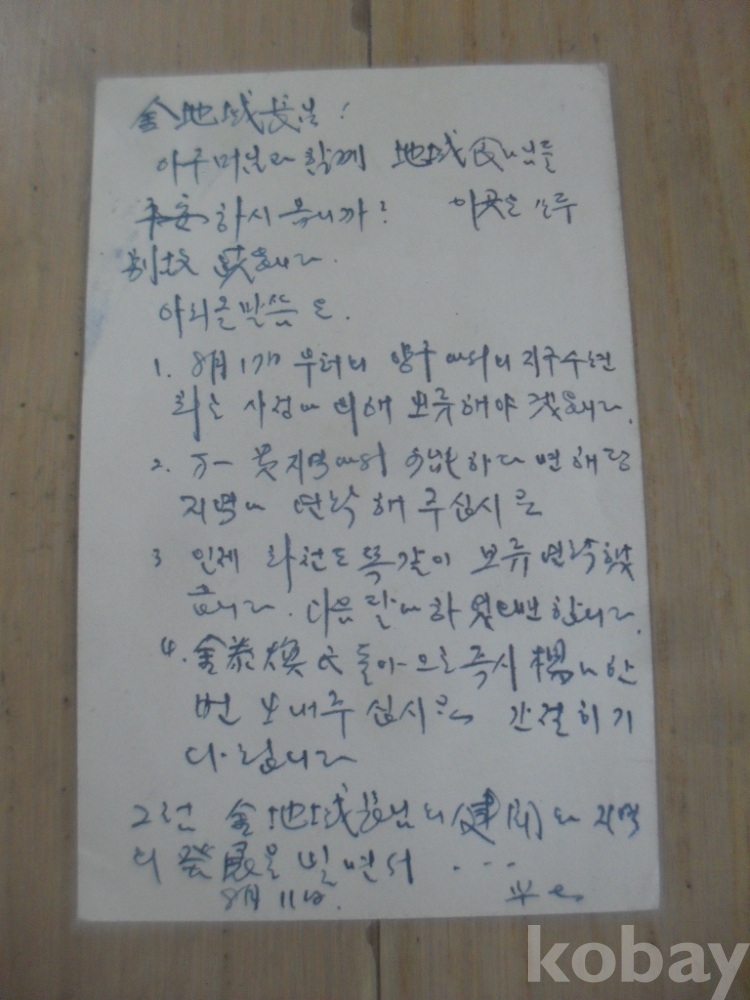 金地域長님!
아주머님과 함께 地域民님들
平安하시옵니까? 이곳은 모두
別故 없습니다.
아뢰올말씀은.
1. 8月 부터의 양구에서의 지구수련
회는 사정에 의해 보류해야 겠습니다.
2. 万一 지역에서 하다면 해당
지역에 연락해 주십시요
3 인제 화천도 똑같이 보류 연락했
습니다. 다음 달에 하 합니다.
4. 金泰煥氏 돌아 즉시 楊에 한
번 보내주십시요 간절히 기
다립니다
그럼 金地域長님의 健闘와 지역
의 発展을 빌면서 ...
8月 11日.
kobay